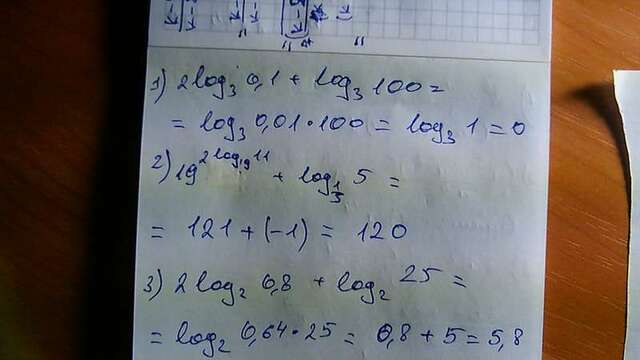 1) 2log₃ 0,1 + log₃ 100 =
= log₃ 0,01 · 100 = log₃ 1 = 0
2) 19^(2log₁₉ 11) + log_(1/5) 5 =
= 121 + (-1) = 120
3) 2log₂ 0,8 + log₂ 25 =
= log₂ 0,64 · 25 = 0,8 + 5 = 5,8